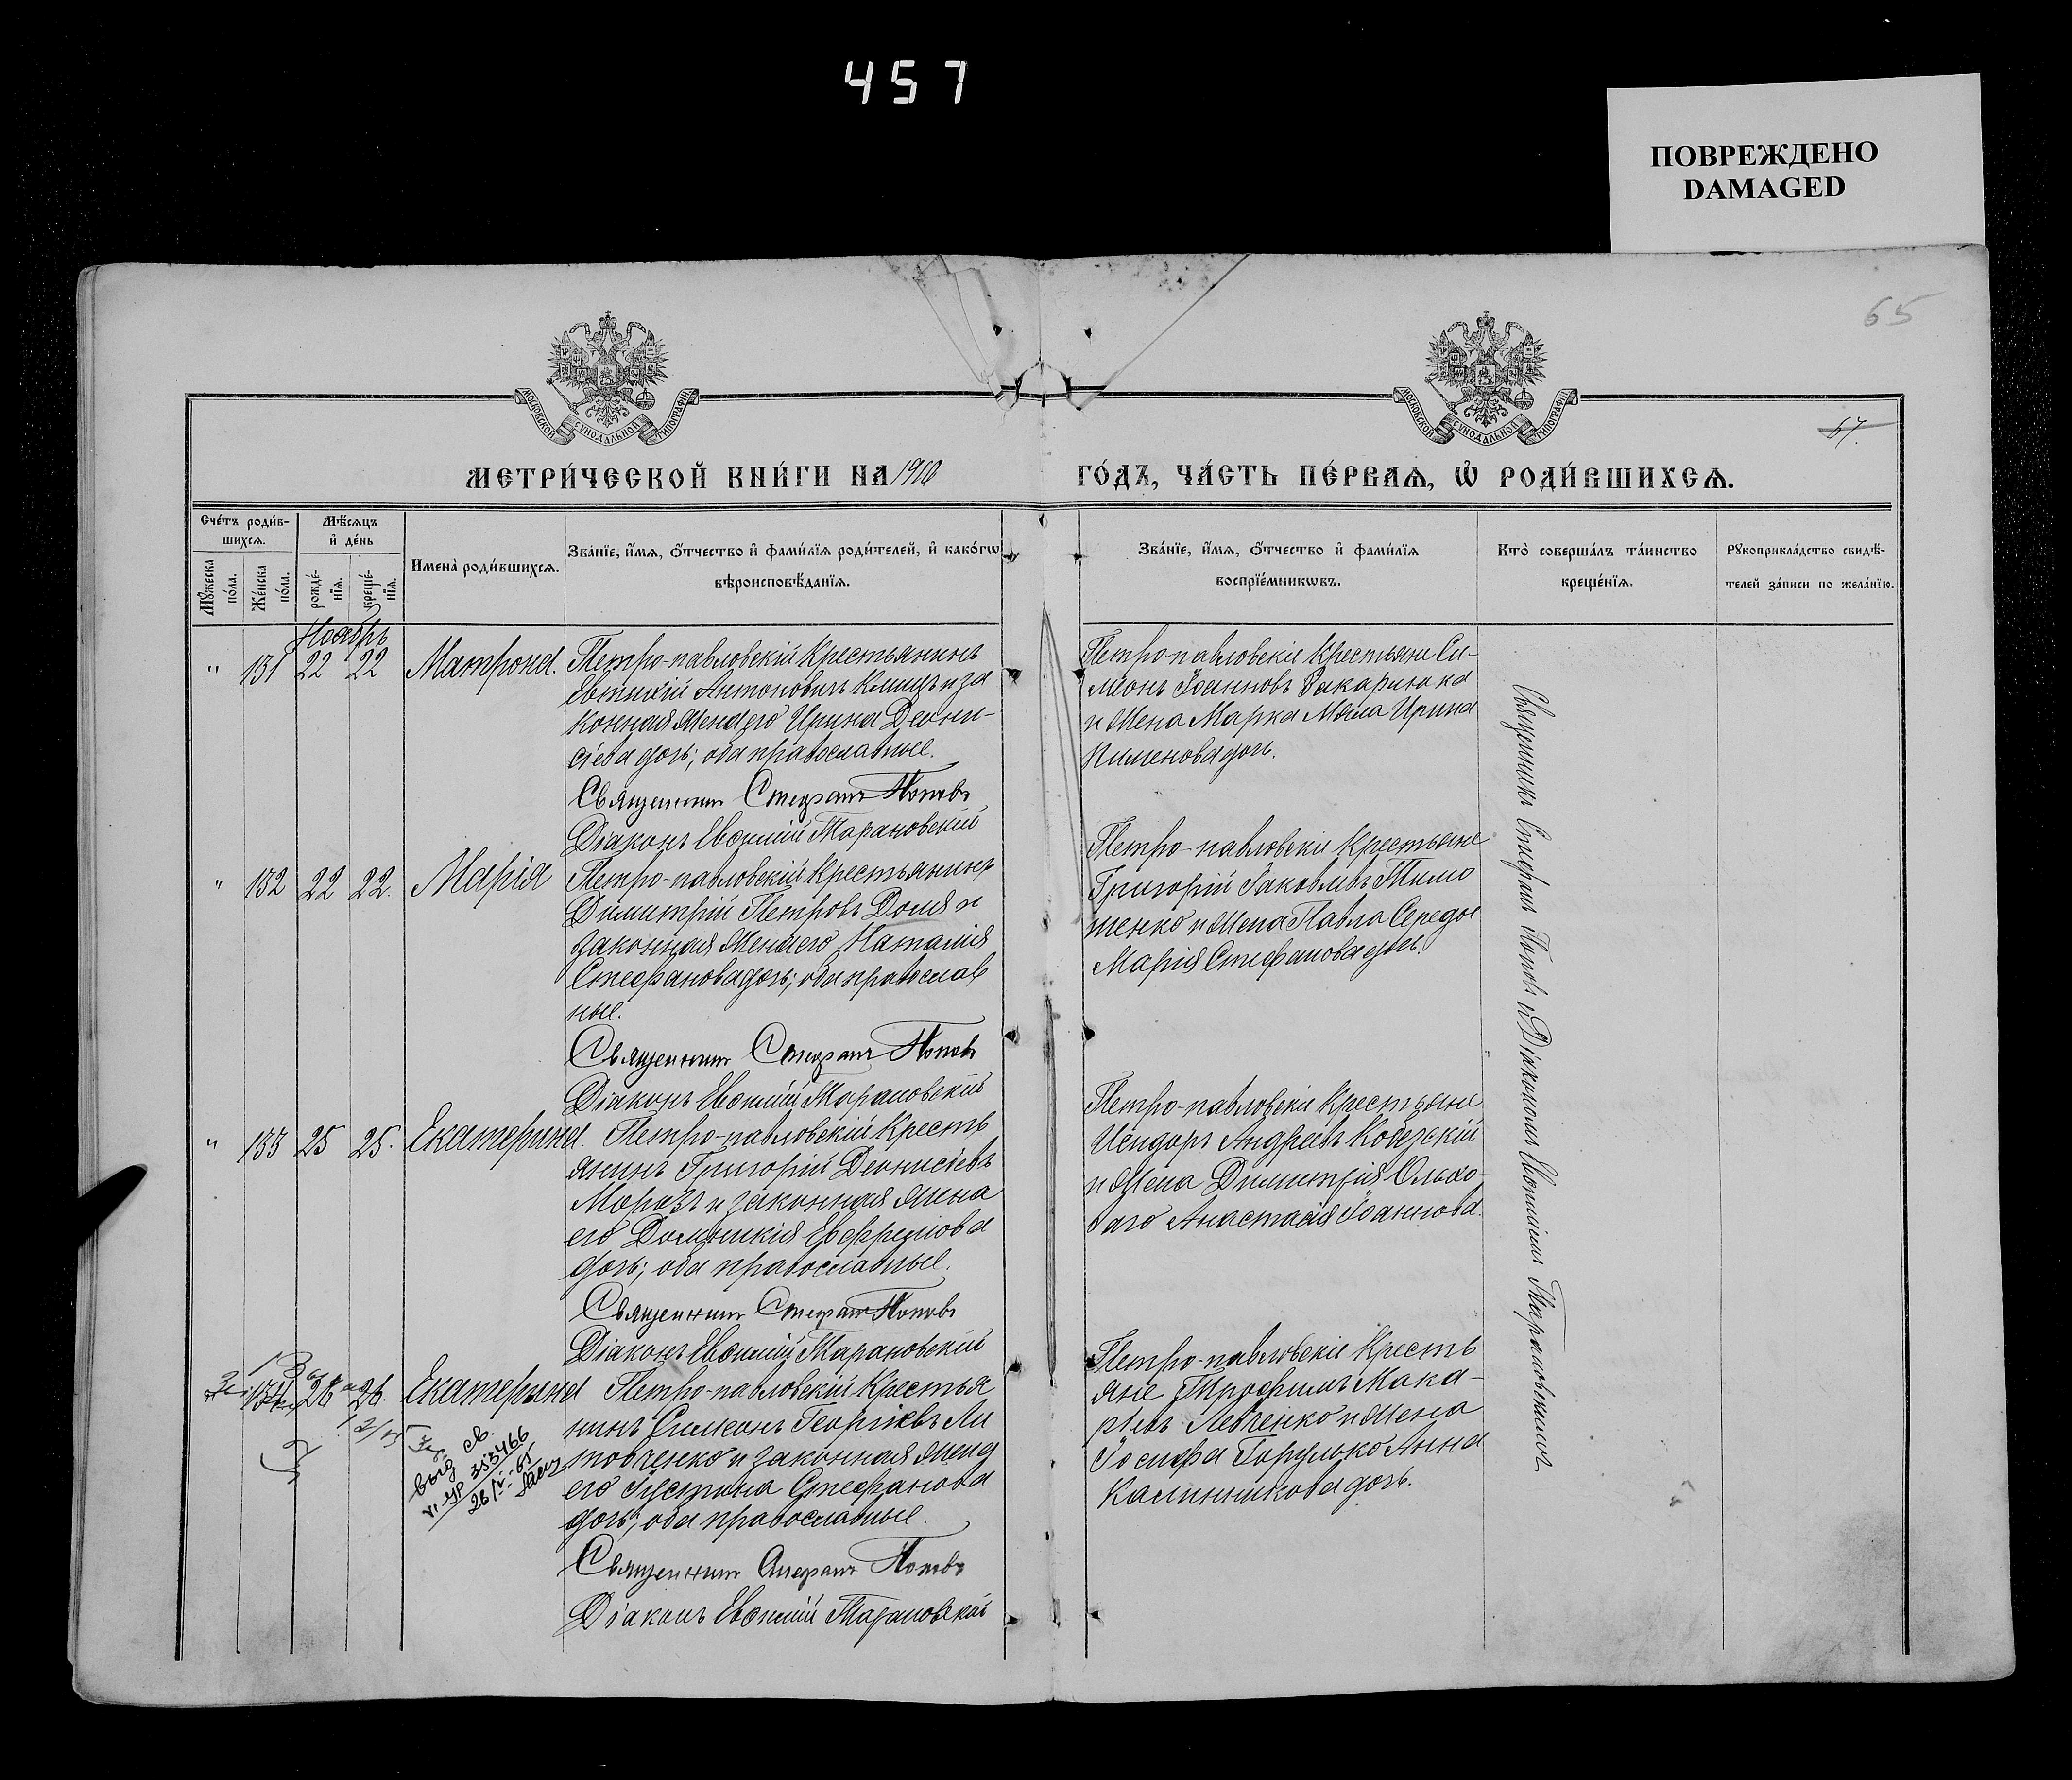 457
ПОВРЕЖДЕНО
DAMAGED
65
МОСКОВСКОЙ СѴНОДАЛЬНОЙ ТИПОГРАФІИ
МОСКОВСКОЙ СѴНОДАЛЬНОЙ ТИПОГРАФІИ
57.
МЕТРИ́ЧЕСКОЙ КНИ́ГИ НА 1900
ГО́ДЪ, ЧА́СТЬ ПЕ́РВАѦ, Ѡ҆ РОДИ́ВШИХСѦ.
Сче́тъ роди́в-
шихсѧ.
Мѣ́сѧцъ
и҆ де́нь
Мꙋ́жеска
по́ла.
Же́нска
по́ла.
рожде́-
нїѧ.
креще́-
нїѧ.
Имена̀ роди́вшихсѧ.
Зва́нїе, и҆́мѧ, ѻ҆́тчество и҆ фами́лїѧ роди́телей, и҆ како́гѡ
вѣроисповѣ́данїѧ.
Зва́нїе, и҆́мѧ, ѻ҆́тчество и҆ фами́лїѧ
воспрїе́мникѡвъ.
Кто̀ соверша́лъ та́инство
креще́нїѧ.
Рꙋкоприкла́дство свидѣ́-
телей за́писи по жела́нїю.
Ноябрь
" 131 22 22 Матрона.
Петро-павловскій Крестьянинъ
Евтихій Антоновичъ Климъ и за
конная жена его Ирина Діони-
сіева дочь; оба православные.
Священникъ Стефанъ Поповъ
Діаконъ Евфимій Тарановскій
Петро-павловскіе Крестьяне Си-
меонъ Іоанновъ Захарина на
и жена Марка Мяла Ирина
Пименова дочь.
" 132 22 22. Марія
Петро-павловскій Крестьянинъ
Димитрій Петровъ Доля и
законная жена его Наталія
Стефанова дочь; оба православ
ные.
Священникъ Стефанъ Поповъ
Діаконъ Евфимій Тарановскій
Петро-павловскіе Крестьяне
Григорій Іаковлевъ Тимо
шенко и жена Павла Середы
Марія Стефанова дочь.
" 133 25 25. Екатерина.
Петро-павловскій Кресть
янинъ Григорій Діонисіевъ
Морозъ и законная жена
его Домникія Евфремова
дочь; оба православные.
Священникъ Стефанъ Поповъ
Діаконъ Евфимій Тарановскій
Петро-павловскіе Крестьяне
Исидоръ Андреевъ Кобезскій
и жена Димитрія Ольхо
ваго Анастасія Іоаннова.
134 26 26. Екатерина
Петро-павловскій Крестья
нинъ Симеонъ Георгіевъ Ли
товченко и законная жена
его Іустина Стефанова
дочь; оба православные.
Священникъ Стефанъ Поповъ
Діаконъ Евфимій Тарановскій
выд св.
353466
Петро-павловскіе Кресть
яне Трофимъ Мака-
ріевъ Левченко и жена
Іосифа Горулько Анна
Калинникова дочь.
Священникъ Стефанъ Поповъ и Діакономъ Евфиміемъ Тарановскимъ